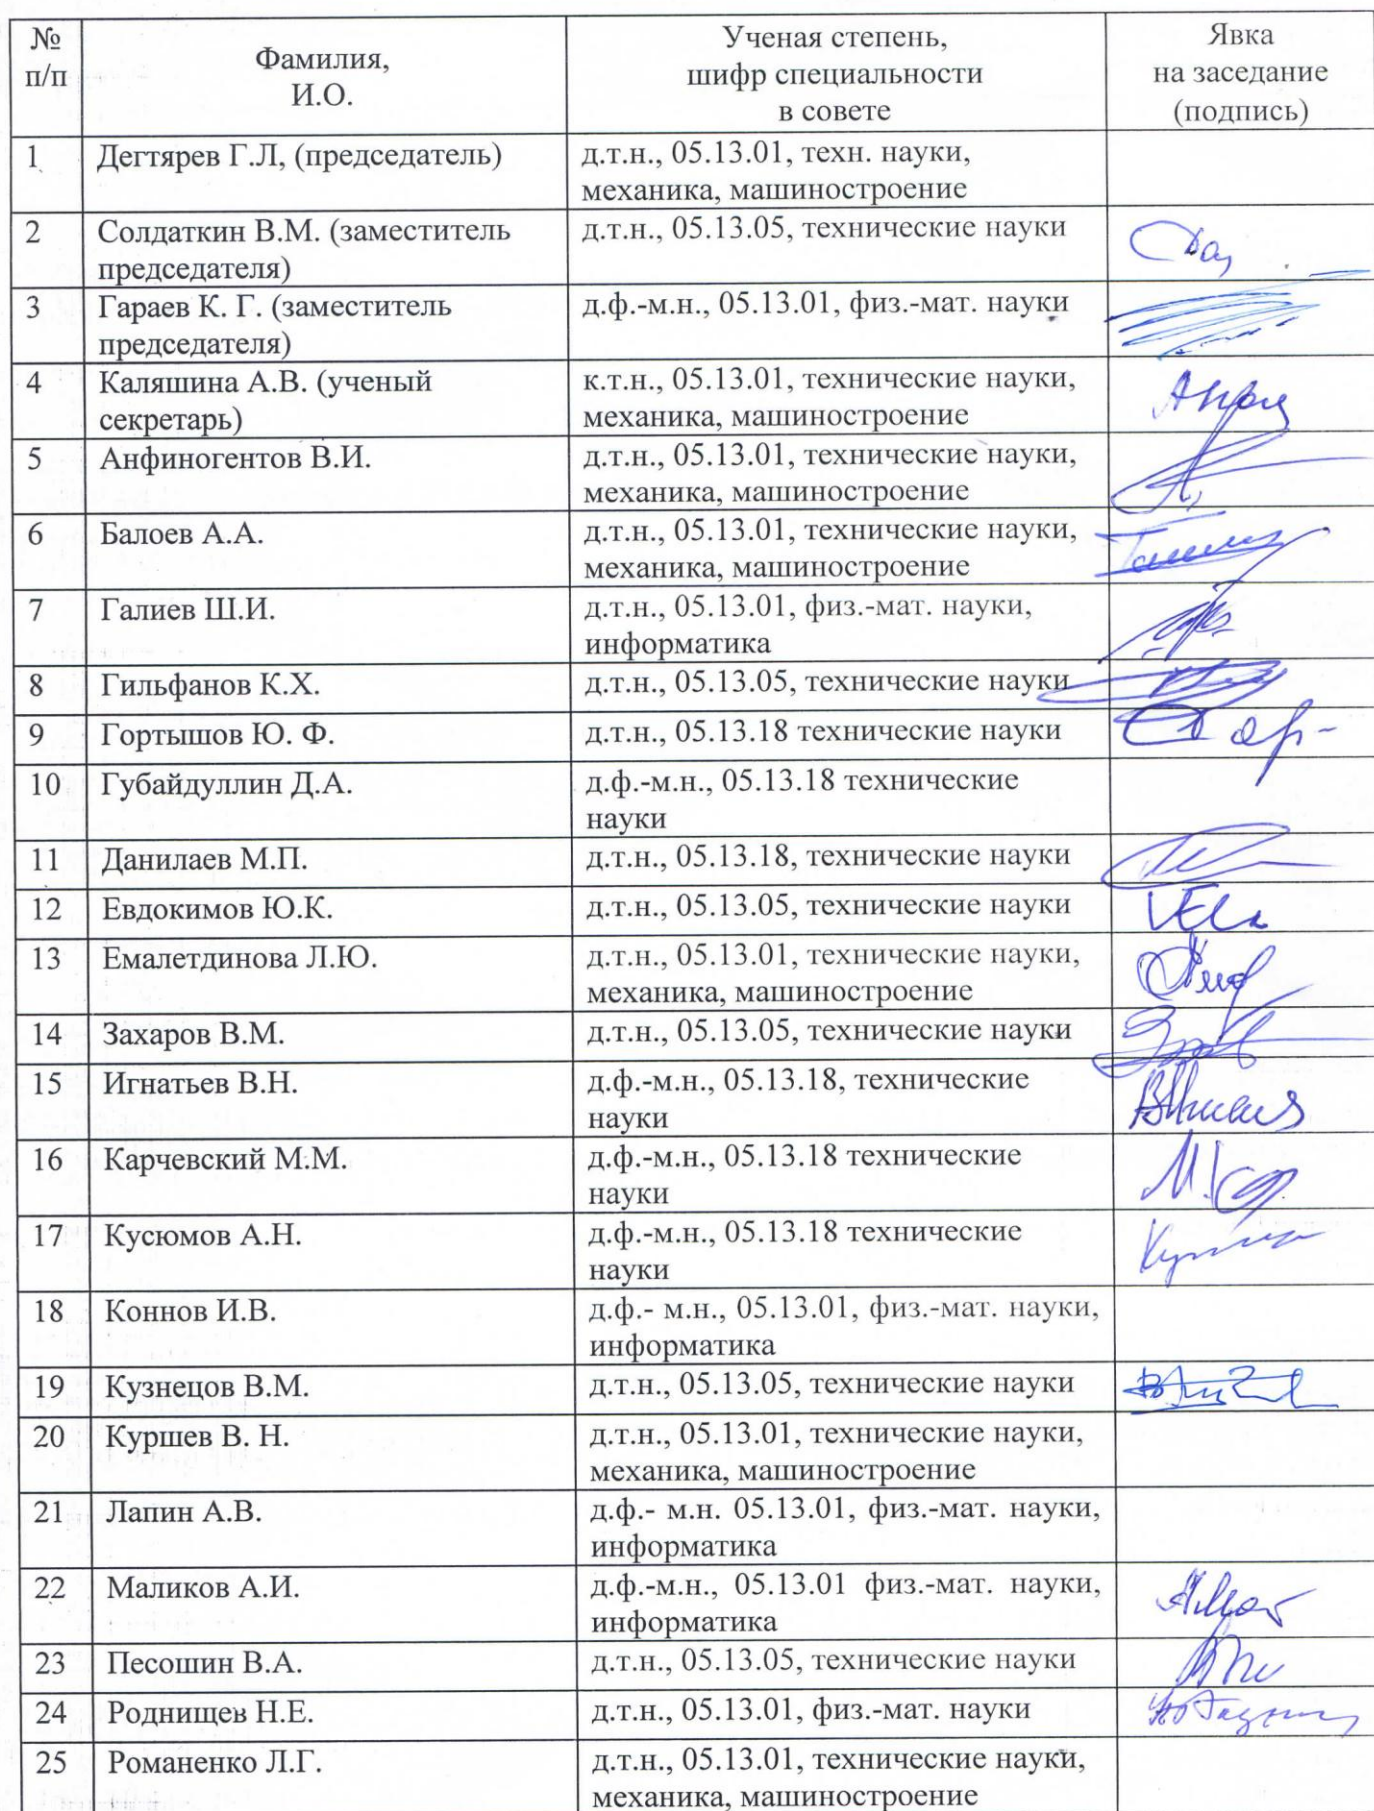 №
п/п
Фамилия,
И.О.
Ученая степень,
шифр специальности
в совете
Явка
на заседание
(подпись)
1 Дегтярев Г.Л, (председатель) д.т.н., 05.13.01, техн. науки,
механика, машиностроение
2 Солдаткин В.М. (заместитель д.т.н., 05.13.05, технические науки
председателя)
3 Гараев К. Г. (заместитель д.ф.-м.н., 05.13.01, физ.-мат. науки
председателя)
4 Каляшина А.В. (ученый к.т.н., 05.13.01, технические науки,
секретарь) механика, машиностроение
5 Анфиногентов В.И. д.т.н., 05.13.01, технические науки,
механика, машиностроение
6 Балоев А.А. д.т.н., 05.13.01, технические науки,
механика, машиностроение
7 Галиев Ш.И. д.т.н., 05.13.01, физ.-мат. науки,
информатика
8 Гильфанов К.Х. д.т.н., 05.13.05, технические науки
9 Гортышов Ю. Ф. д.т.н., 05.13.18 технические науки
10 Губайдуллин Д.А. д.ф.-м.н., 05.13.18 технические
науки
11 Данилаев М.П. д.т.н., 05.13.18, технические науки
12 Евдокимов Ю.К. д.т.н., 05.13.05, технические науки
13 Емалетдинова Л.Ю. д.т.н., 05.13.01, технические науки,
механика, машиностроение
14 Захаров В.М. д.т.н., 05.13.05, технические науки
15 Игнатьев В.Н. д.ф.-м.н., 05.13.18, технические
науки
16 Карчевский М.М. д.ф.-м.н., 05.13.18 технические
науки
17 Кусюмов А.Н. д.ф.-м.н., 05.13.18 технические
науки
18 Коннов И.В. д.ф.- м.н., 05.13.01, физ.-мат. науки,
информатика
19 Кузнецов В.М. д.т.н., 05.13.05, технические науки
20 Куршев В. Н. д.т.н., 05.13.01, технические науки,
механика, машиностроение
21 Лапин А.В. д.ф.- м.н. 05.13.01, физ.-мат. науки,
информатика
22 Маликов А.И. д.ф.-м.н., 05.13.01 физ.-мат. науки,
информатика
23 Песошин В.А. д.т.н., 05.13.05, технические науки
24 Роднищев Н.Е. д.т.н., 05.13.01, физ.-мат. науки
25 Романенко Л.Г. д.т.н., 05.13.01, технические науки,
механика, машиностроение